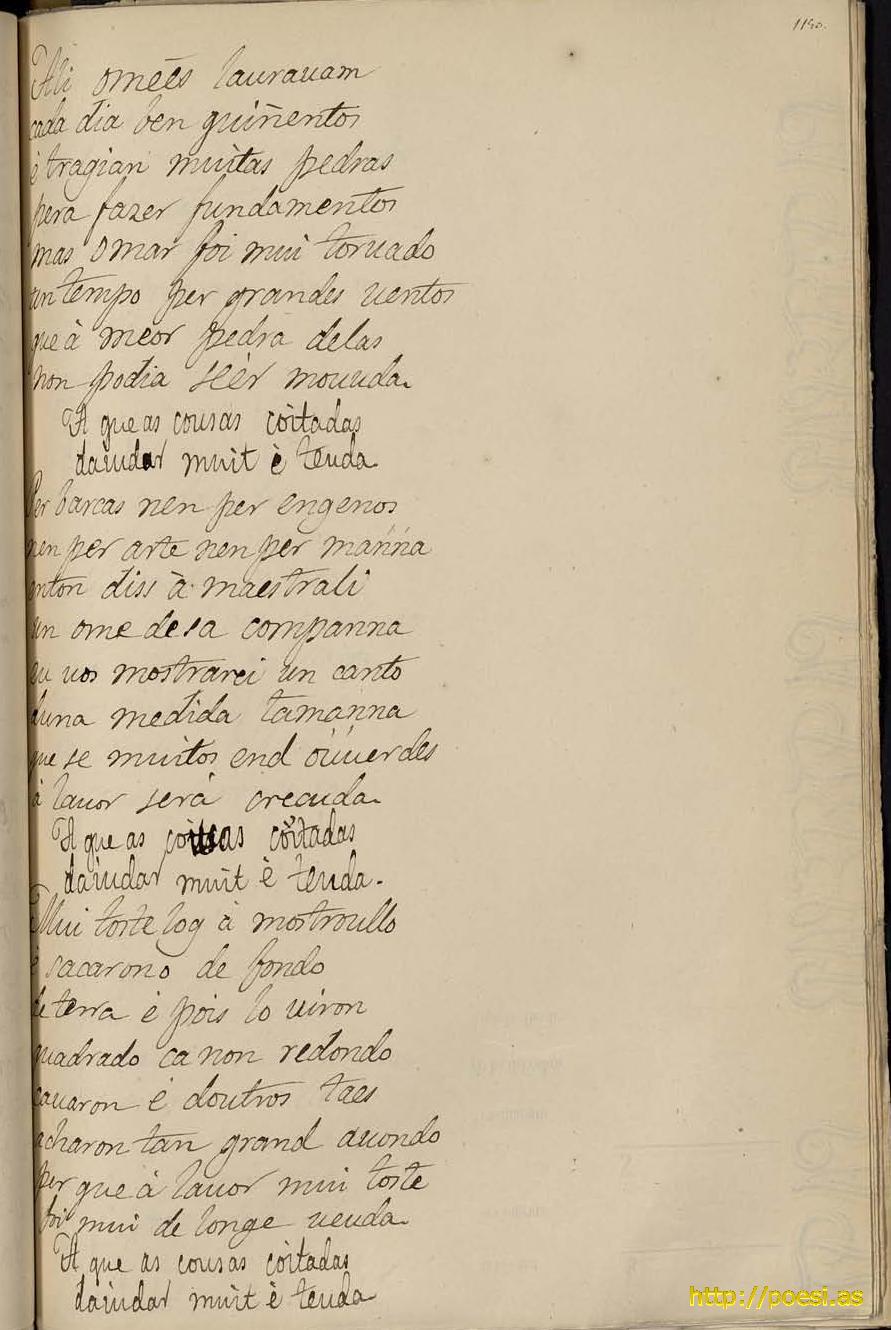 1190.
Ali omẽes laurauam
cada dia ben quiñentos
è tragian muitas pedras
pera fazer fundamentos
mas o mar foi mui toruado
un tempo per grandes uentos
que à mẽor pedra delas
non podia sẽer mouuda.
A que as cousas coitadas
daiudar muit è teuda
Per barcas nen per engenos
nen per arte nen per manna
enton diss à maestrali
un ome de sa companna
eu uos mostrarei un canto
duna medida tamanna
que se muitos end ouuerdes
à lauor serà creçuda.
A que as cousas coitadas
daiudar muit è teuda.
Mui toste log à mostroullo
è sacarono de fondo
de terra è pois lo uiron
quadrado ca non redondo
cauaron è doutros taes
acharon tan grand auondo
per que à lauor mui toste
foi mui de longe ueuda.
A que as cousas coitadas
daiudar muit è teuda
http://poesi.as